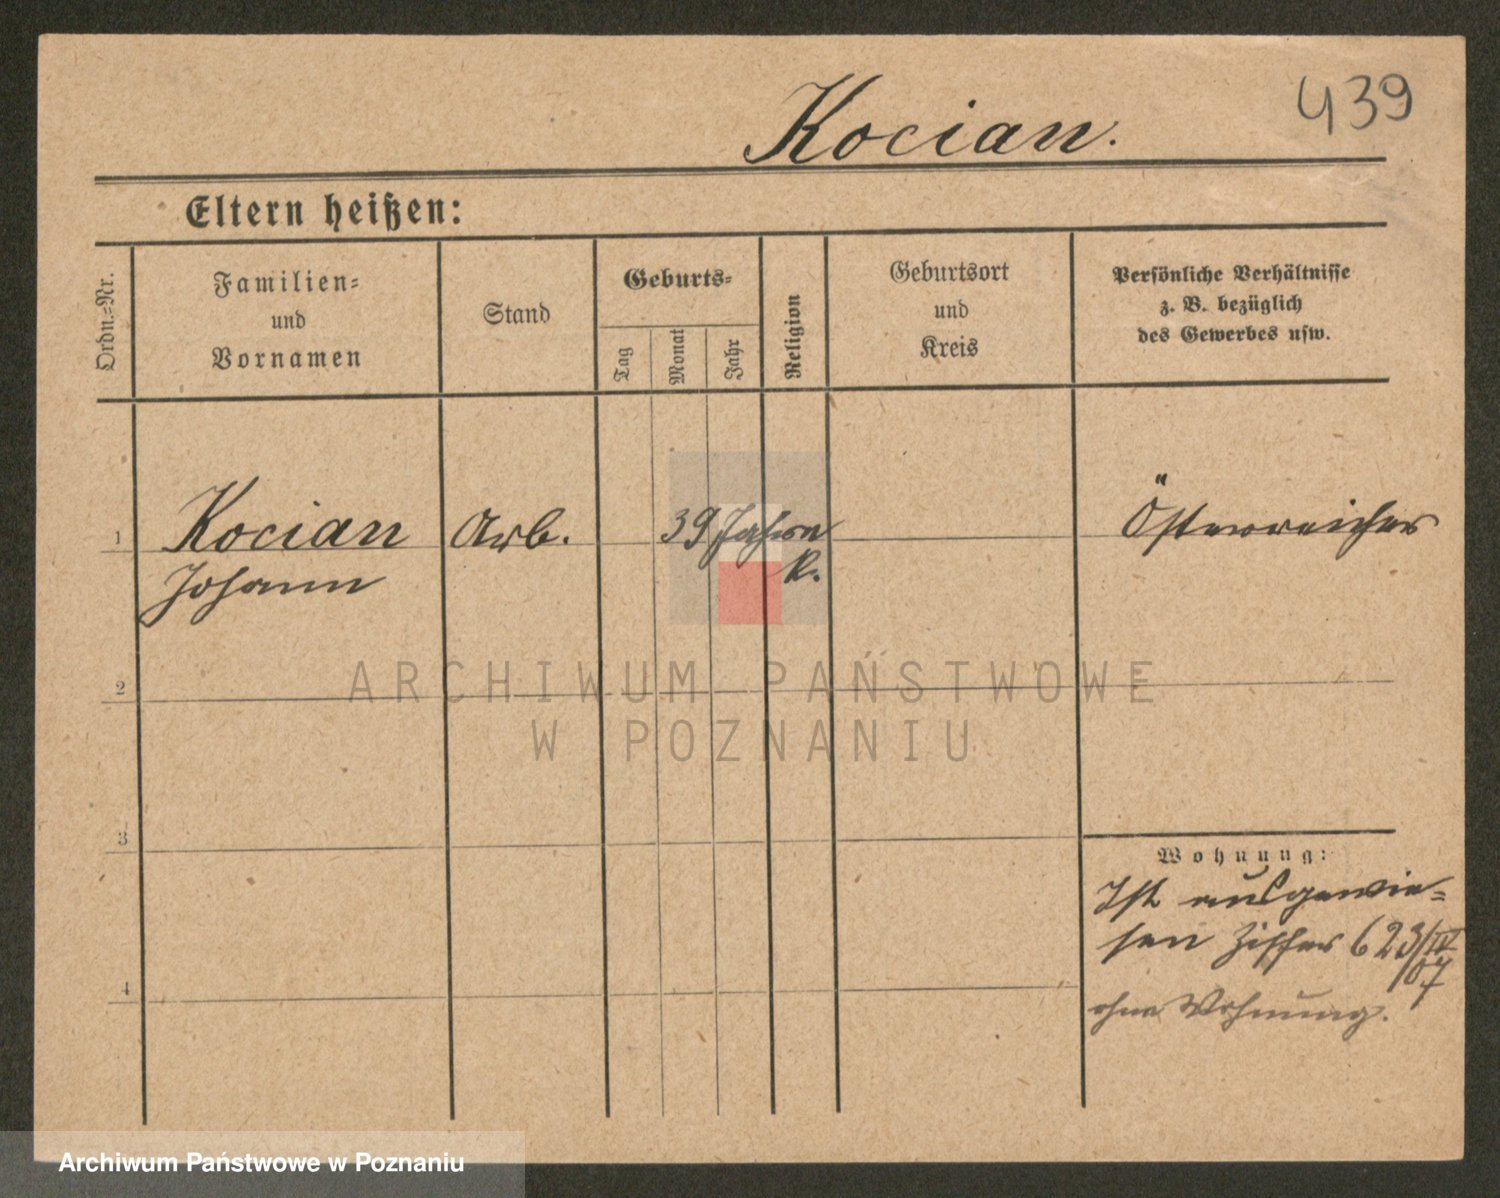 439
Kocian.
Eltern heißen:
Ordn.=Nr.
Familien=
und
Vornamen
Stand
Geburts=
Tag
Monat
Jahr
Religion
Geburtsort
und
Kreis
Persönliche Verhältnisse
z. B. bezüglich
des Gewerbes usw.
1
Kocian
Johann
Arb.
39 Jahre
K.
Österreicher
2
ARCHIWUM PAŃSTWOWE
W POZNANIU
3
Wohnung:
Ist ausgewie=
sen Ziffer 623/IV
/07
4
ohne Wohnung.
Archiwum Państwowe w Poznaniu